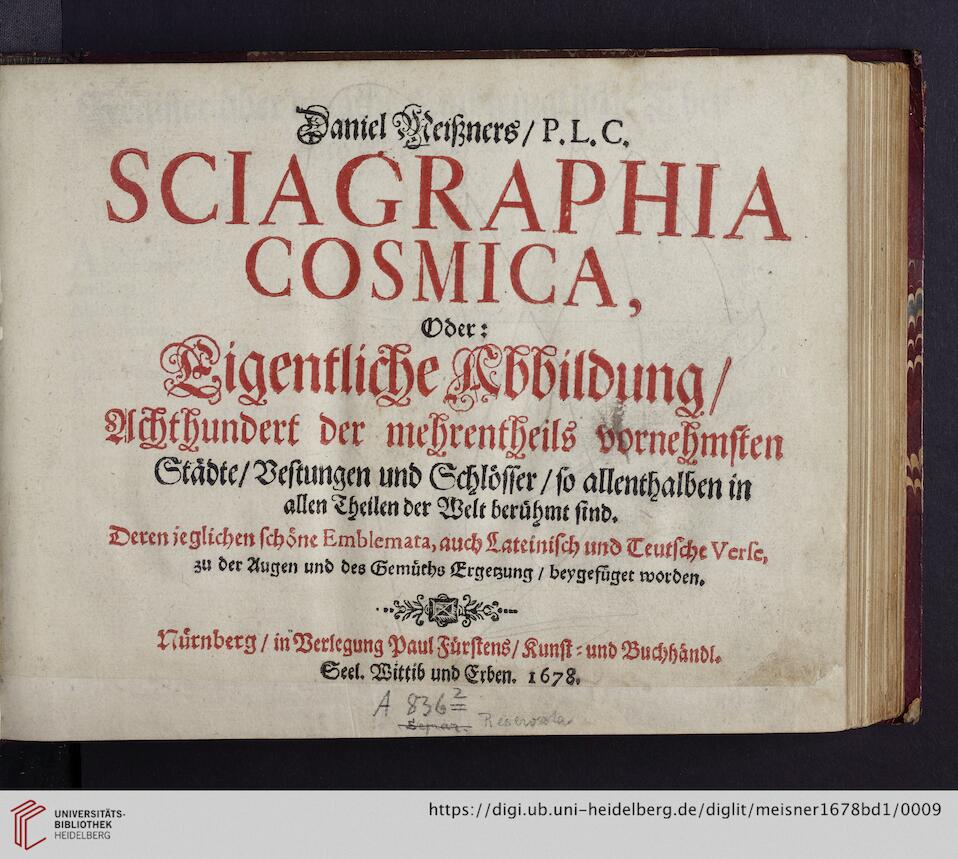 Daniel Meißners / P. L. C.
SCIAGRAPHIA
COSMICA,
Oder:
Eigentliche Abbildung /
Achthundert der mehrentheils vornehmsten
Städte / Vestungen und Schlösser / so allenthalben in
allen Theilen der Welt berühmt sind.
Deren jeglichen schöne Emblemata, auch Lateinisch und Teutsche Verse,
zu der Augen und des Gemüths Ergetzung / beygefüget worden.
Nürnberg / in Verlegung Paul Fürstens / Kunst- und Buchhändl.
Seel. Wittib und Erben. 1678.
A 836 2
Reservata
UNIVERSITÄTS-
BIBLIOTHEK
HEIDELBERG
https://digi.ub.uni-heidelberg.de/diglit/meisner1678bd1/0009